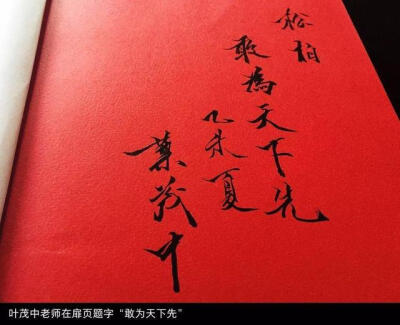 松柏
敢為天下先
乙未夏
葉茂中
叶茂中老师在扉页题字“敢为天下先”